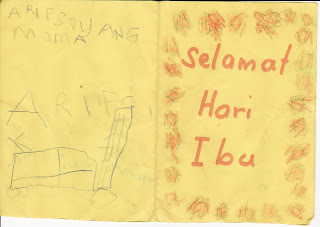 ARIF SAYANG
mama
ARIF
Selamat
Hari
Ibu